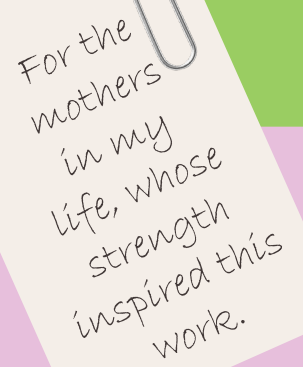 For the
mothers
in my
life, whose
strength
inspired this
work.